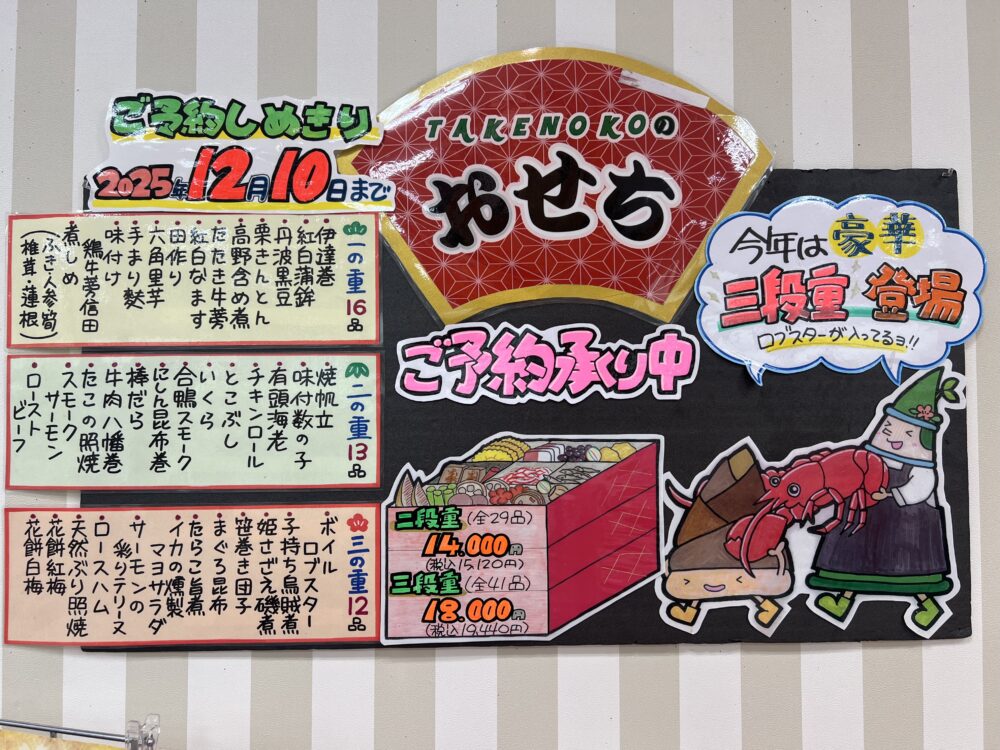 ご予約しめきり
2025年12月10日まで
TAKENOKOの
おせち
今年は豪華
三段重登場
ロブスターが入ってるヨ!!
ご予約承り中
一の重16品
伊達巻
紅白蒲鉾
丹波黒豆
栗きんとん
高野含め煮
たたき牛蒡
紅白なます
田作り
六角里芋
手まり麩
味付け
鶏牛蒡信田
煮しめ
(ふき・人参・筍
椎茸・蓮根)
二の重13品
焼帆立
味付数の子
有頭海老
チキンロール
とこぶし
いくら
合鴨スモーク
にしん昆布巻
棒だら
牛肉八幡巻
たこの照焼
スモーク
サーモン
ロースト
ビーフ
三の重12品
ボイル
ロブスター
子持ち烏賊煮
姫さざえ磯煮
笹巻き団子
まぐろ昆布
たらこ旨煮
イカの燻製
マヨサラダ
サーモンの
彩りテリーヌ
ロースハム
天然ぶり照焼
花餅紅梅
花餅白梅
二段重(全29品)
14,000円
(税込15,120円)
三段重(全41品)
18,000円
(税込19,440円)